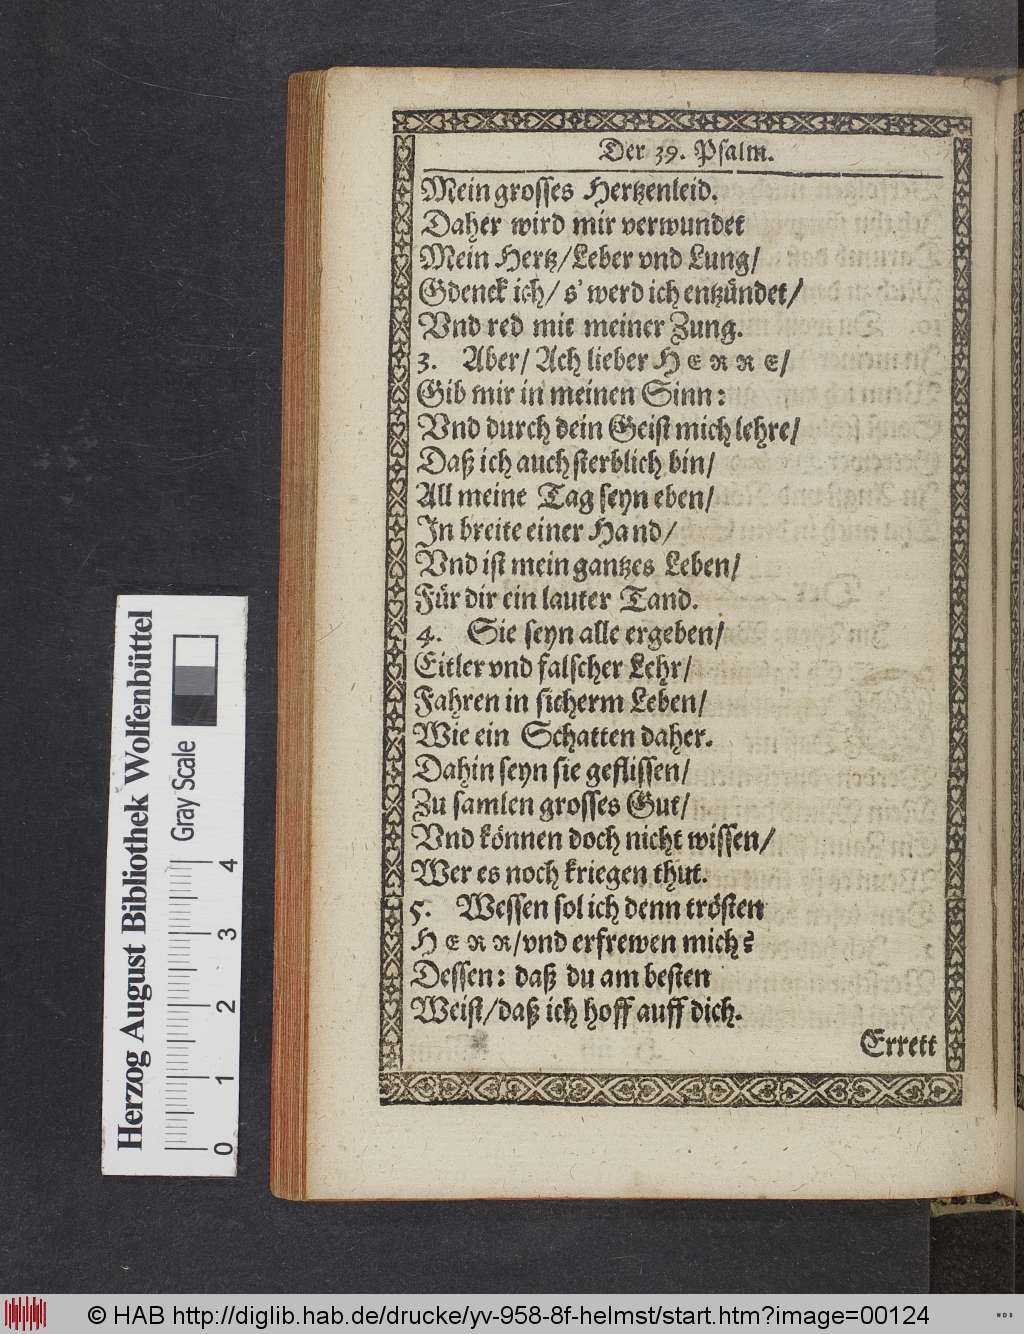 Der 39. Psalm.
Mein grosses Hertzenleid.
Daher wird mir verwundet
Mein Hertz/Leber vnd Lung/
Gdenck ich/ s' werd ich entzündet/
Vnd red mit meiner Zung.
3. Aber/ Ach lieber HERRE/
Gib mir in meinen Sinn:
Vnd durch dein Geist mich lehre/
Daß ich auch sterblich bin/
All meine Tag seyn eben/
In breite einer Hand/
Vnd ist mein gantzes Leben/
Für dir ein lauter Tand.
4. Sie seyn alle ergeben/
Eitler vnd falscher Lehr/
Fahren in sicherm Leben/
Wie ein Schatten daher.
Dahin seyn sie geflissen/
Zu samlen grosses Gut/
Vnd können doch nicht wissen/
Wer es noch kriegen thut.
5. Wessen sol ich denn trösten
HERR/vnd erfrewen mich?
Dessen: daß du am besten
Weist/daß ich hoff auff dich.
Errett
Herzog August Bibliothek Wolfenbüttel
Gray Scale
0 1 2 3 4
© HAB http://diglib.hab.de/drucke/yv-958-8f-helmst/start.htm?image=00124